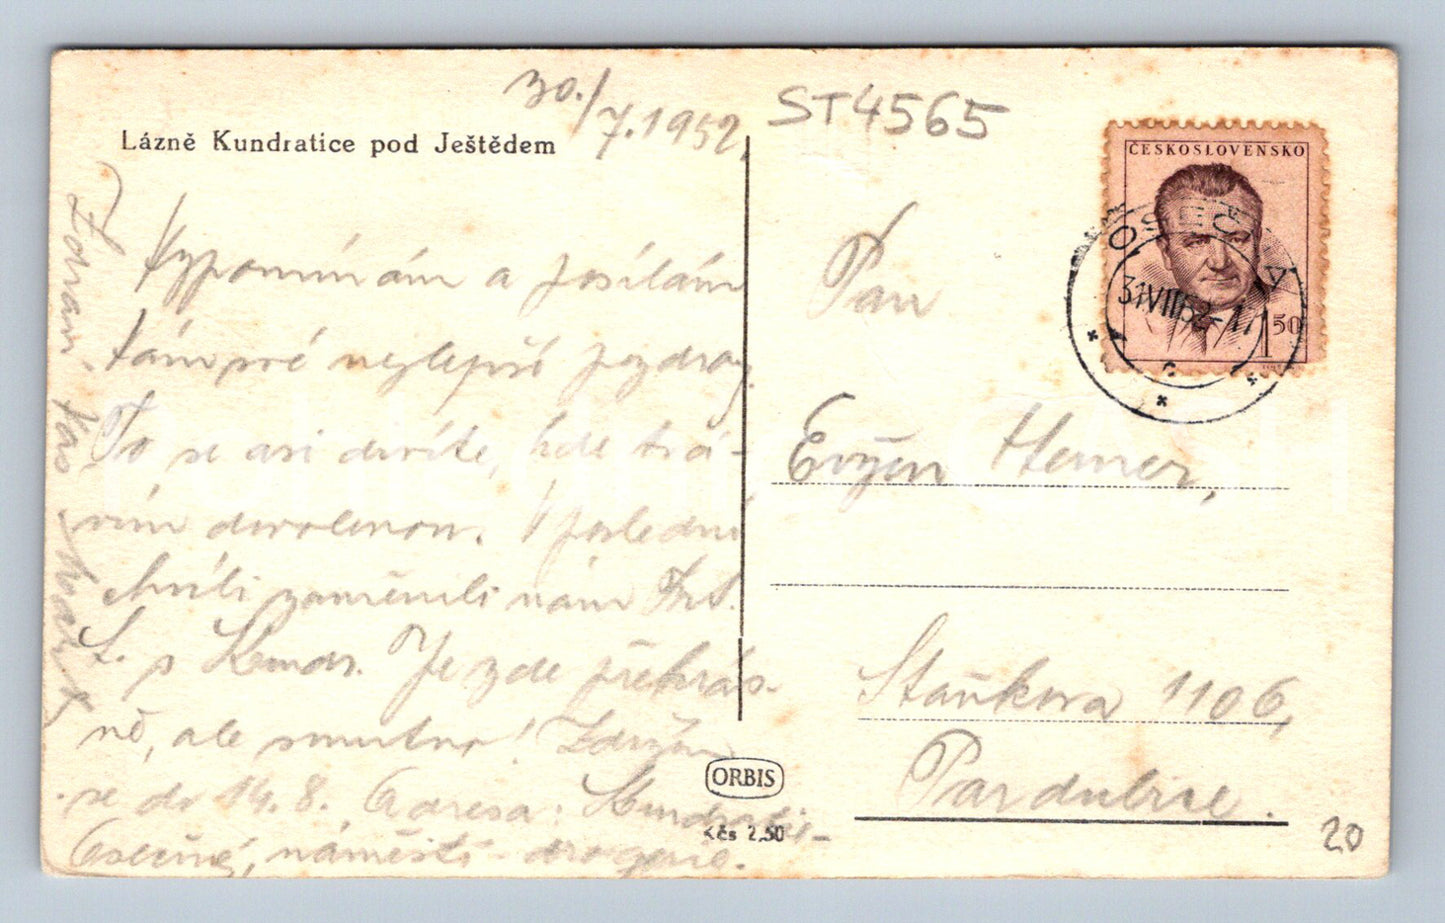 30./7.1952.
ST4565
Lázně Kundratice pod Ještědem
ČESKOSLOVENSKO
31.VII.52-17
1 50
Vzpomínám a posílám
tam své nejlepší pozdravy.
To se asi divíte, kde trá-
vím dovolenou. V poslední
chvíli zaměnili nám Frt.
L. s Kundr. Je zde překrás-
ně, ale smutno! Zdržím
se do 14. 8. Adresa: Kundratic-
Osečná, náměstí - drogerie.
Zdraví Vás
Pan
Evžen Hemer,
Staňkova 1106,
Pardubice.
ORBIS
Kčs 2,50
20